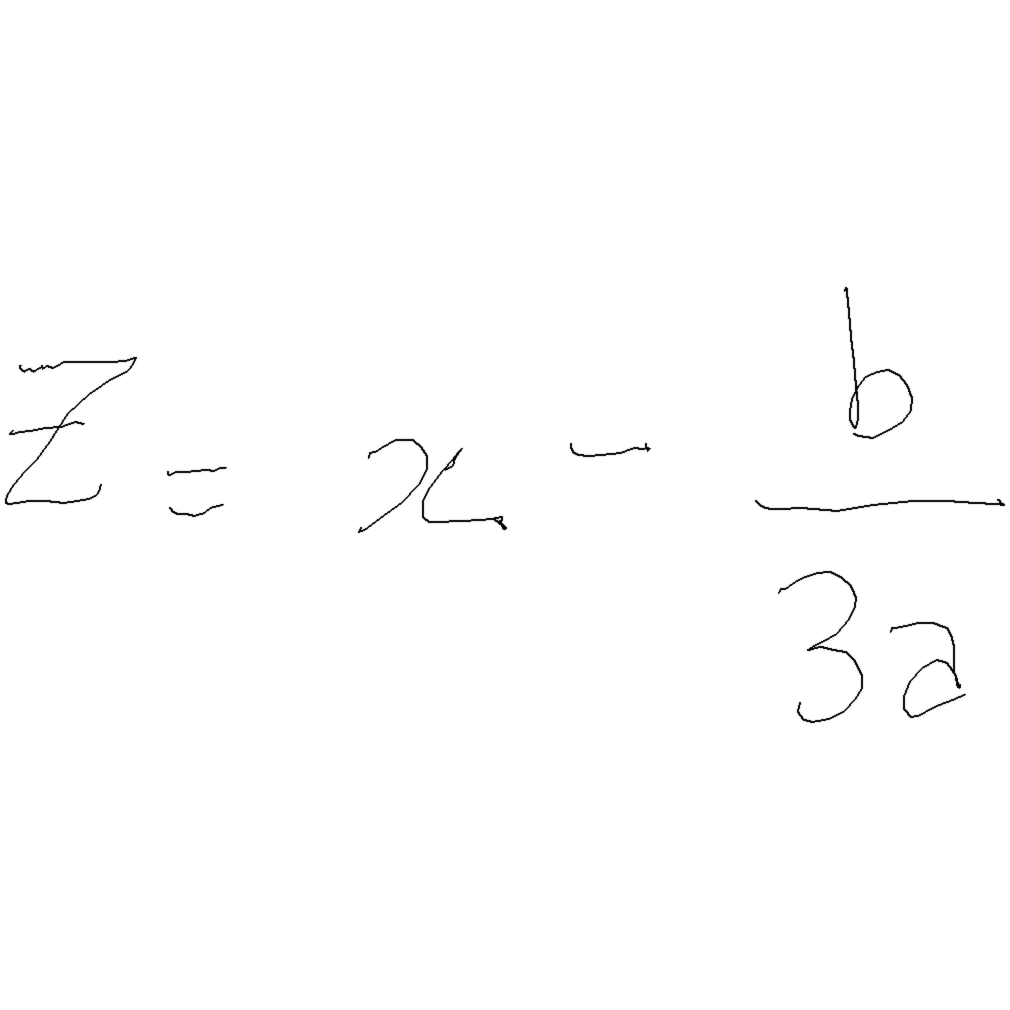 z = x - \frac{b}{3a}